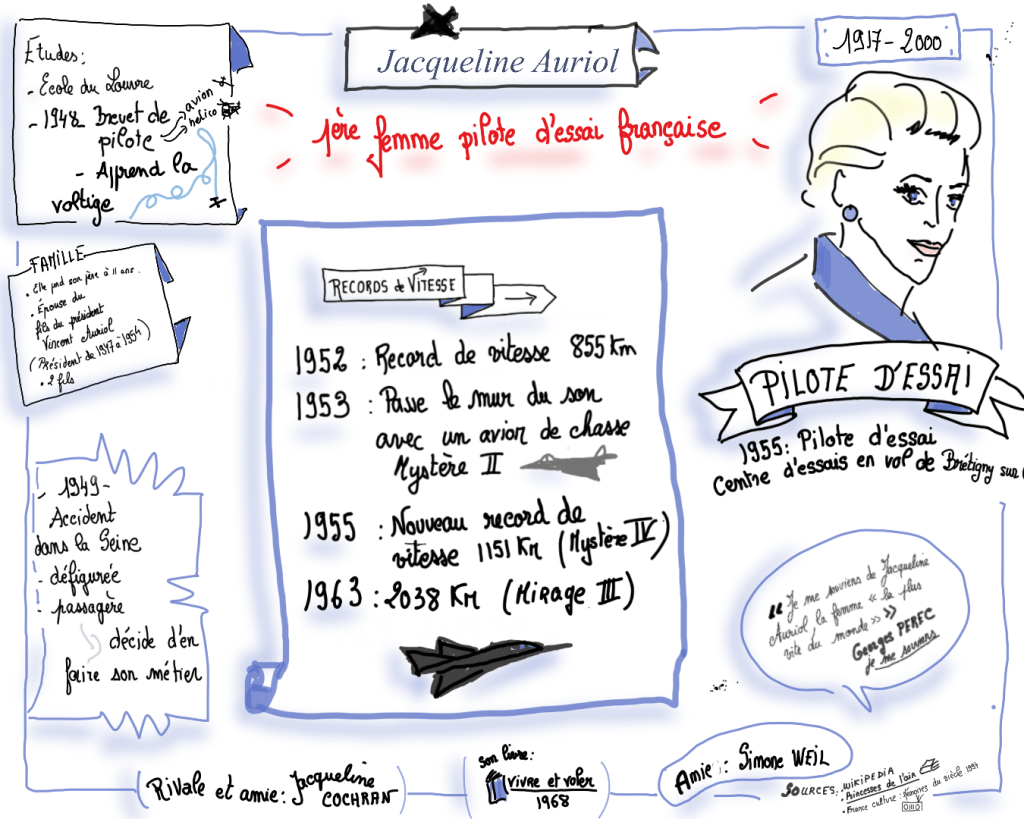 Etudes:
- Ecole du Louvre
- 1948 Brevet de
pilote
avion
helico
- Apprend la
voltige
Jacqueline Auriol
1917-2000
1ère femme pilote d'essai française
FAMILLE
• Elle perd son père à 11 ans.
• Épouse du
fils du président
Vincent Auriol
(Président de 1947 à 1954)
• 2 fils
RECORDS de VITESSE
1952 : Record de vitesse 855 km
1953 : Passe le mur du son
avec un avion de chasse
Mystère II
1955 : Nouveau record de
vitesse 1151 Km (Mystère IV)
1963 : 2038 Km (Mirage III)
PILOTE D'ESSAI
1955: Pilote d'essai
Centre d'essais en vol de Brétigny sur
- 1949-
Accident
dans la Seine
- défigurée
- passagère
décide d'en
faire son métier
"Je me souviens de Jacqueline
Auriol la femme « la plus
vite du monde »"
Georges PEREC
je me souviens
Rivale et amie: Jacqueline
COCHRAN
son livre:
Vivre et voler
1968
Amie : Simone WEIL
SOURCES: • WIKIPEDIA
• Princesses de l'air
• France culture : Mémoires du siècle 1994